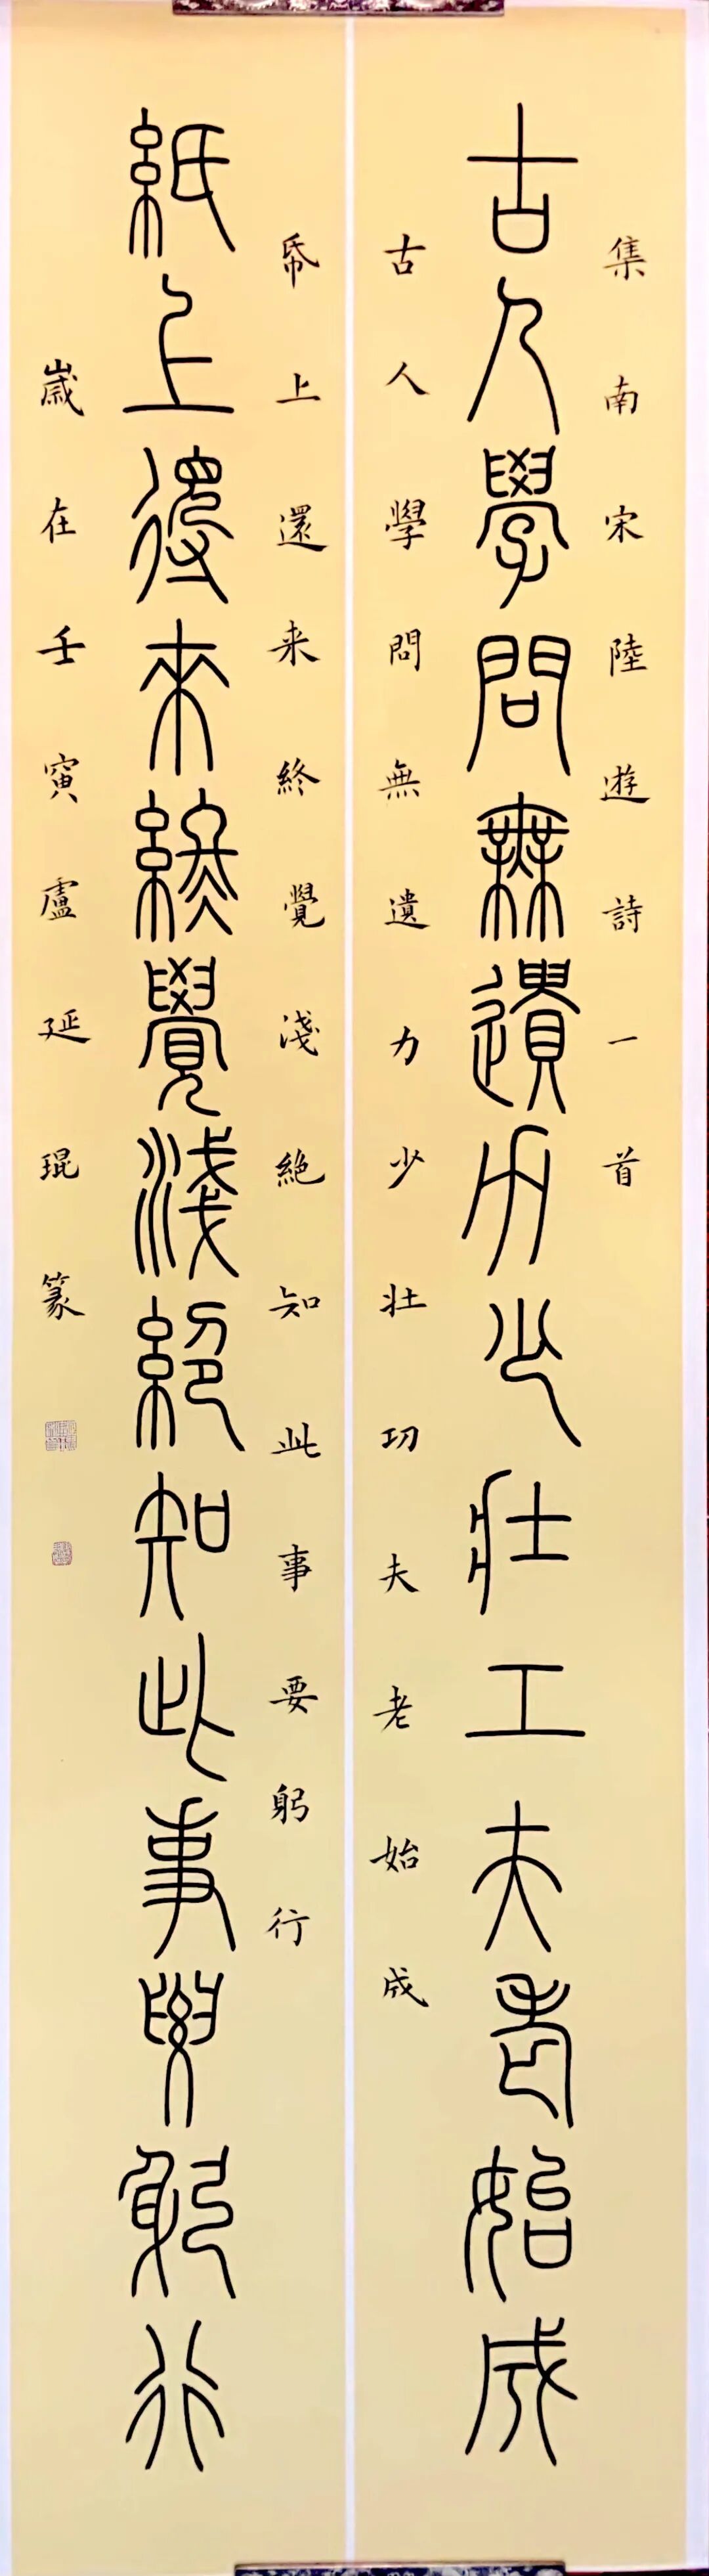 集南宋陸遊詩一首
古人學問無遺力少壯工夫老始成
古人學問無遺力少壯功夫老始成
帋上還来終覺淺絶知此事要躬行
紙上復来終覺淺絕知此事要躬行
歲在壬寅盧延琨篆